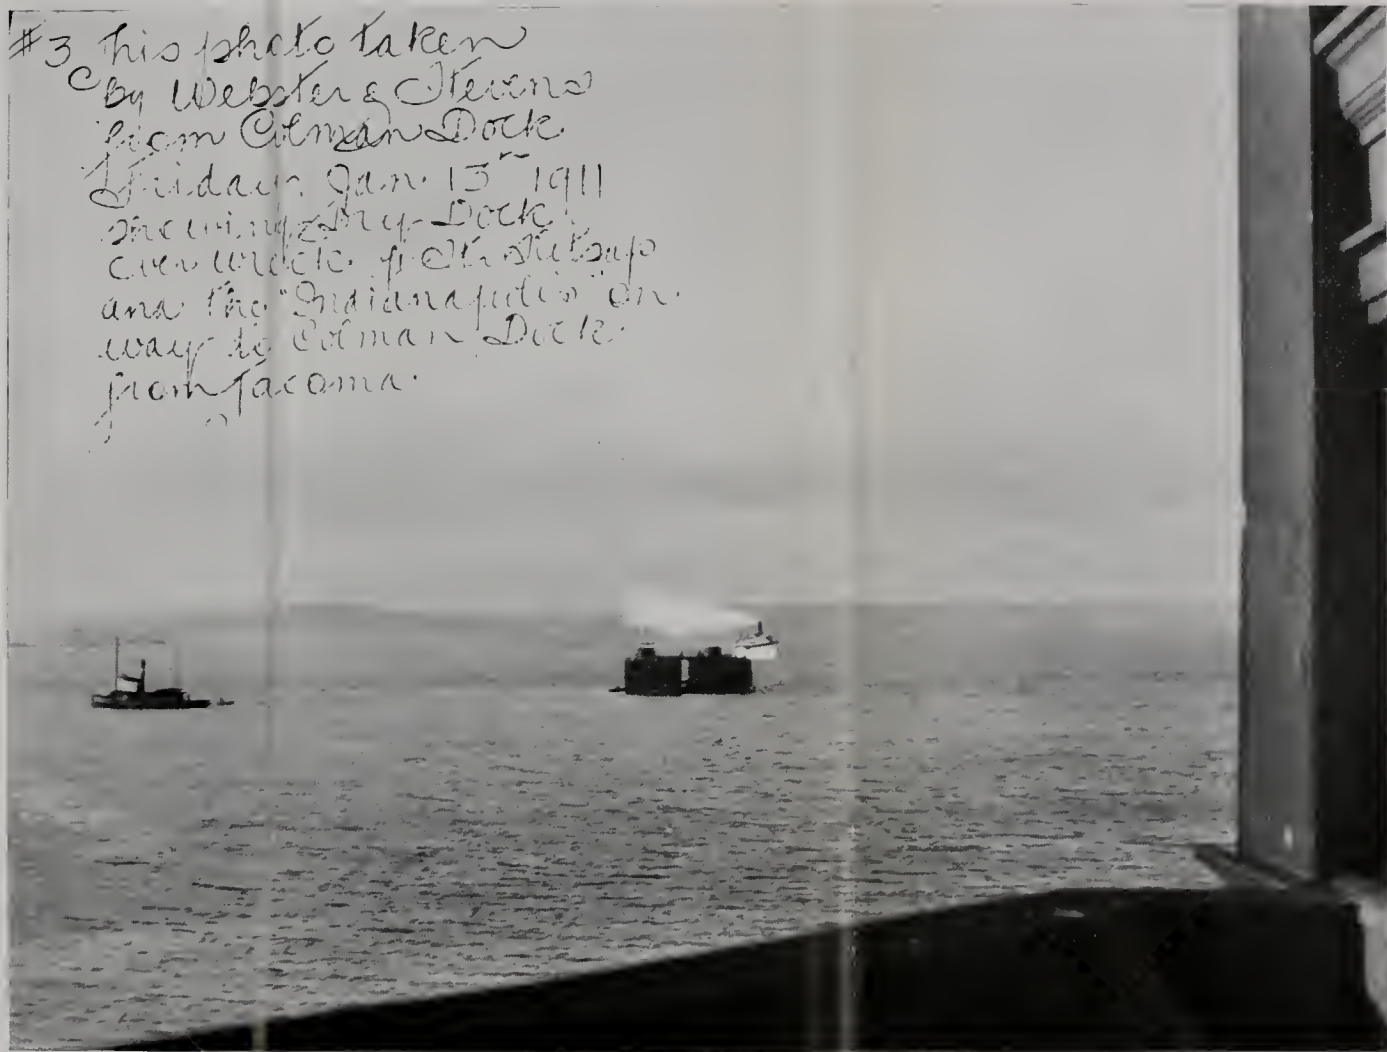 #3 This photo taken
by Webster & Stevens
from Colman Dock
Friday. Jan. 13 1911
showing Dry-Dock
over wreck of Str Kitsap
and the "Indianapolis" on
way to Colman Dock
from Tacoma.